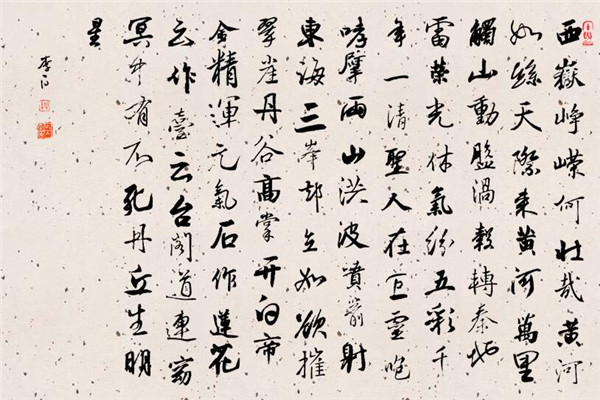 西嶽峥嶸何壮哉黄河
如絲天際来黄河萬里
觸山動盤渦轂轉秦地
雷荣光休氣紛五彩千
年一清聖人在巨靈咆
哮擘兩山洪波噴箭射
東海三峯却立如欲摧
翠崖丹谷高掌开白帝
金精運元氣石作蓮花
云作臺云台阁道連窈
冥中有不死丹丘生明
星
李白